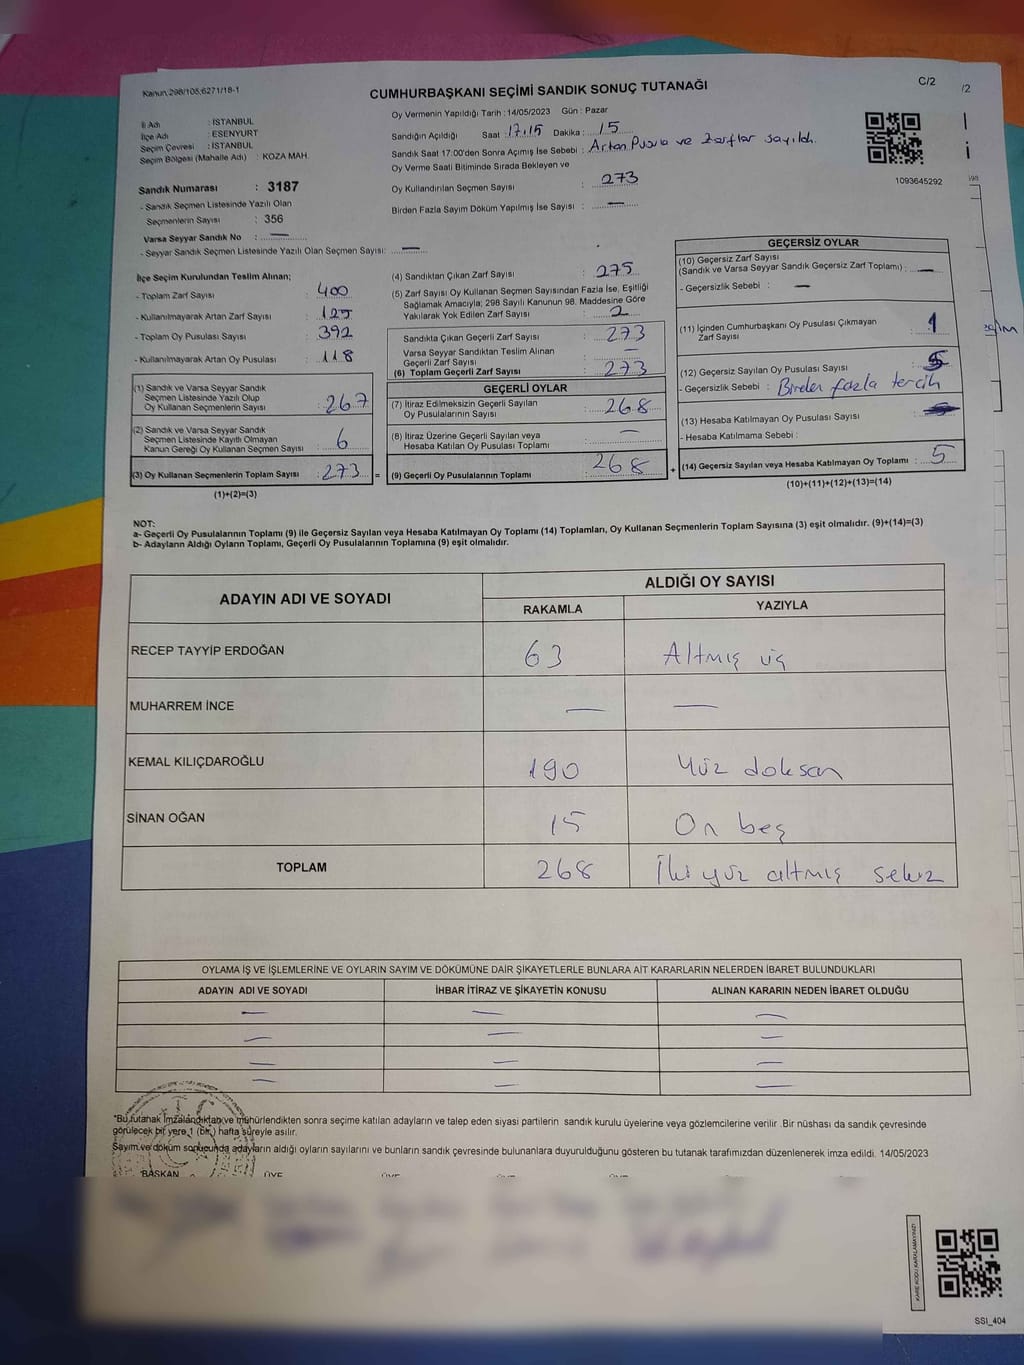 Kanun 298/105,6271/18-1
CUMHURBAŞKANI SEÇİMİ SANDIK SONUÇ TUTANAĞI
C/2
/2
İl Adı : İSTANBUL
İlçe Adı : ESENYURT
Seçim Çevresi : İSTANBUL
Seçim Bölgesi (Mahalle Adı) : KOZA MAH.
Oy Vermenin Yapıldığı Tarih : 14/05/2023 Gün : Pazar
Sandığın Açıldığı Saat : 17:15 Dakika : 15
Sandık Saat 17:00'den Sonra Açımış İse Sebebi : Artan Pusula ve zarflar sayıldı.
Oy Verme Saati Bitiminde Sırada Bekleyen ve
Oy Kullandırılan Seçmen Sayısı : 273
Birden Fazla Sayım Döküm Yapılmış İse Sayısı : —
1093645292
Sandık Numarası : 3187
- Sandık Seçmen Listesinde Yazılı Olan
Seçmenlerin Sayısı : 356
Varsa Seyyar Sandık No : —
- Seyyar Sandık Seçmen Listesinde Yazılı Olan Seçmen Sayısı: —
İlçe Seçim Kurulundan Teslim Alınan;
- Toplam Zarf Sayısı : 400
- Kullanılmayarak Artan Zarf Sayısı : 125
- Toplam Oy Pusulası Sayısı : 392
- Kullanılmayarak Artan Oy Pusulası : 118
(1) Sandık ve Varsa Seyyar Sandık
Seçmen Listesinde Yazılı Olup
Oy Kullanan Seçmenlerin Sayısı : 267
(2) Sandık ve Varsa Seyyar Sandık
Seçmen Listesinde Kayıtlı Olmayan
Kanun Gereği Oy Kullanan Seçmen Sayısı : 6
(3) Oy Kullanan Seçmenlerin Toplam Sayısı : 273 =
(1)+(2)=(3)
(4) Sandıktan Çıkan Zarf Sayısı : 275
(5) Zarf Sayısı Oy Kullanan Seçmen Sayısından Fazla İse, Eşitliği
Sağlamak Amacıyla; 298 Sayılı Kanunun 98. Maddesine Göre
Yakılarak Yok Edilen Zarf Sayısı : 2
Sandıkta Çıkan Geçerli Zarf Sayısı : 273
Varsa Seyyar Sandıktan Teslim Alınan
Geçerli Zarf Sayısı : —
(6) Toplam Geçerli Zarf Sayısı : 273
GEÇERLİ OYLAR
(7) İtiraz Edilmeksizin Geçerli Sayılan
Oy Pusulalarının Sayısı : 268
(8) İtiraz Üzerine Geçerli Sayılan veya
Hesaba Katılan Oy Pusulası Toplamı : —
(9) Geçerli Oy Pusulalarının Toplamı : 268 +
GEÇERSİZ OYLAR
(10) Geçersiz Zarf Sayısı
(Sandık ve Varsa Seyyar Sandık Geçersiz Zarf Toplamı) : —
- Geçersizlik Sebebi : —
(11) İçinden Cumhurbaşkanı Oy Pusulası Çıkmayan
Zarf Sayısı : 1
(12) Geçersiz Sayılan Oy Pusulası Sayısı : 5
- Geçersizlik Sebebi : Birden fazla tercih
(13) Hesaba Katılmayan Oy Pusulası Sayısı :
- Hesaba Katılmama Sebebi :
(14) Geçersiz Sayılan veya Hesaba Katılmayan Oy Toplamı : 5
(10)+(11)+(12)+(13)=(14)
NOT:
a- Geçerli Oy Pusulalarının Toplamı (9) ile Geçersiz Sayılan veya Hesaba Katılmayan Oy Toplamı (14) Toplamları, Oy Kullanan Seçmenlerin Toplam Sayısına (3) eşit olmalıdır. (9)+(14)=(3)
b- Adayların Aldığı Oyların Toplamı, Geçerli Oy Pusulalarının Toplamına (9) eşit olmalıdır.
ADAYIN ADI VE SOYADI
ALDIĞI OY SAYISI
RAKAMLA YAZIYLA
RECEP TAYYİP ERDOĞAN 63 Altmış üç
MUHARREM İNCE — —
KEMAL KILIÇDAROĞLU 190 Yüz doksan
SİNAN OĞAN 15 On beş
TOPLAM 268 İki yüz altmış sekiz
OYLAMA İŞ VE İŞLEMLERİNE VE OYLARIN SAYIM VE DÖKÜMÜNE DAİR ŞİKAYETLERLE BUNLARA AİT KARARLARIN NELERDEN İBARET BULUNDUKLARI
ADAYIN ADI VE SOYADI İHBAR İTİRAZ VE ŞİKAYETİN KONUSU ALINAN KARARIN NEDEN İBARET OLDUĞU
— — —
— — —
— — —
— — —
*Bu tutanak imzalandıktan ve mühürlendikten sonra seçime katılan adayların ve talep eden siyasi partilerin sandık kurulu üyelerine veya gözlemcilerine verilir. Bir nüshası da sandık çevresinde
görülecek bir yere 1 (bir) hafta süreyle asılır.
Sayım ve döküm sonucunda adayların aldığı oyların sayılarını ve bunların sandık çevresinde bulunanlara duyurulduğunu gösteren bu tutanak tarafımızdan düzenlenerek imza edildi. 14/05/2023
BAŞKAN ÜYE ÜYE ÜYE ÜYE
KARE KODU KARALAMAYINIZ!
SSI_404